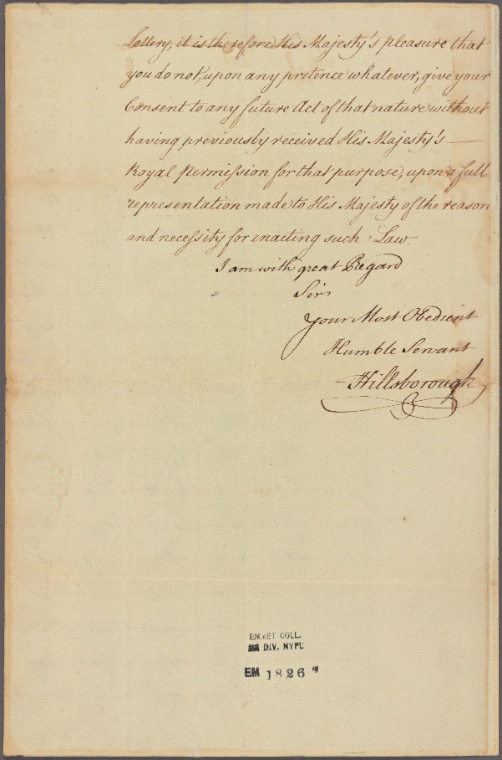 Lottery, it is therefore His Majesty's pleasure that
you do not, upon any pretence whatever, give your
Consent to any future Act of that nature without
having previously received His Majesty's —
Royal Permission for that purpose, upon a full
representation made to His Majesty of the reason
and necessity for enacting such Law.
I am with great Regard
Sir,
Your Most Obedient
Humble Servant
Hillsborough
EMMET COLL.
DIV. NYPL
EM 1826